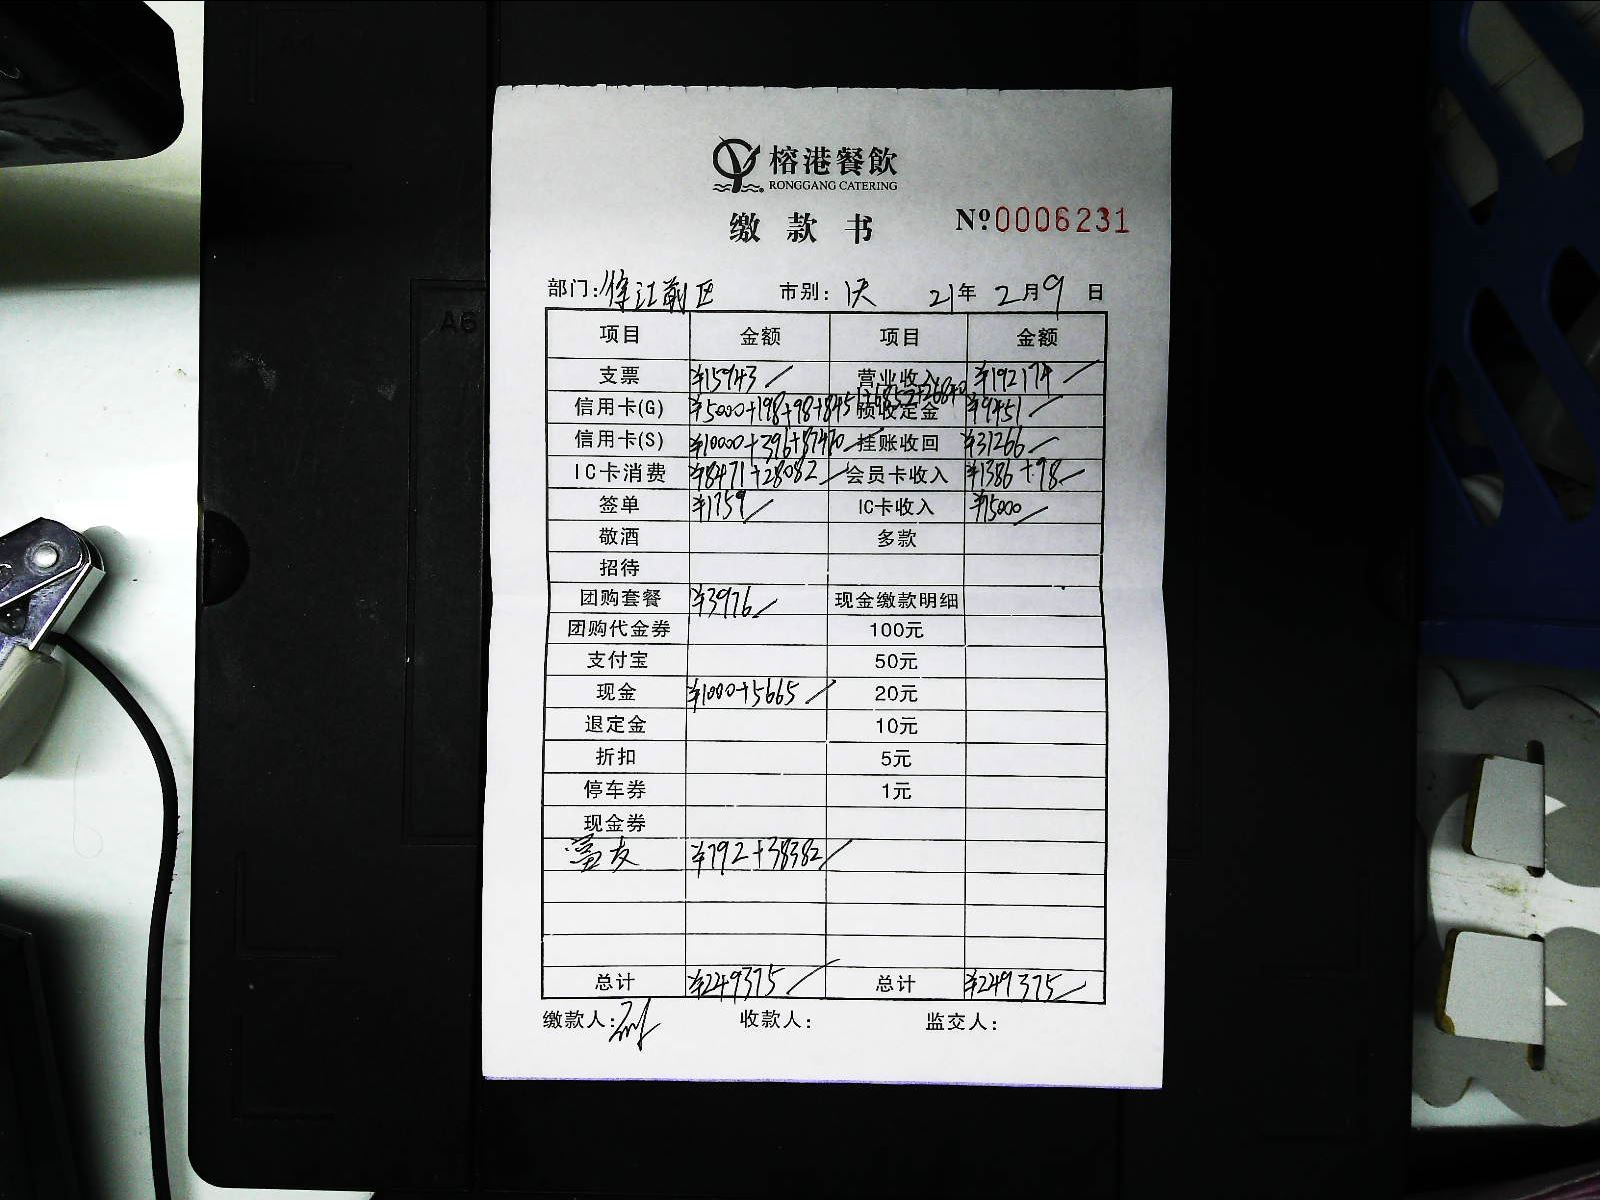 榕港餐飲
RONGGANG CATERING
缴款书 Nº:0006231
部门: 江前区 市别: 1天 21年 2月9日
项目 金额 项目 金额
支票 ¥15943 营业收入 ¥192174
信用卡(G) ¥5000+198+98+845 预收定金 ¥9451
信用卡(S) ¥10000+396+87470 挂账收回 ¥31266
IC卡消费 ¥8471+28082 会员卡收入 ¥1386+98
签单 ¥1759 IC卡收入 ¥15000
敬酒 多款
招待
团购套餐 ¥3976 现金缴款明细
团购代金券 100元
支付宝 50元
现金 ¥1000+5665 20元
退定金 10元
折扣 5元
停车券 1元
现金券
富友 ¥792+38382
总计 ¥249375 总计 ¥249375
缴款人: 收款人: 监交人:
A6